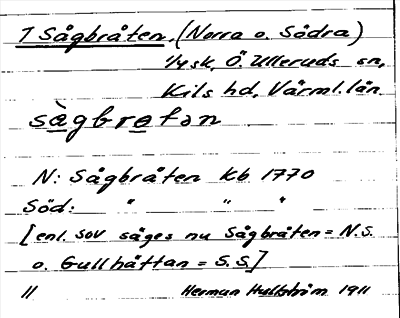 7 Sågbråten, (Norra o. Södra)
1/4 sk, Ö. Ulleruds sn,
Kils hd, Värml. län
sàgbretən
N: Sågbråten Kb 1770
Söd: " " "
[enl. SOV säges nu Sågbråten = N.S.
o. Gullhättan = S.S.]
11 Herman Hultström 1911